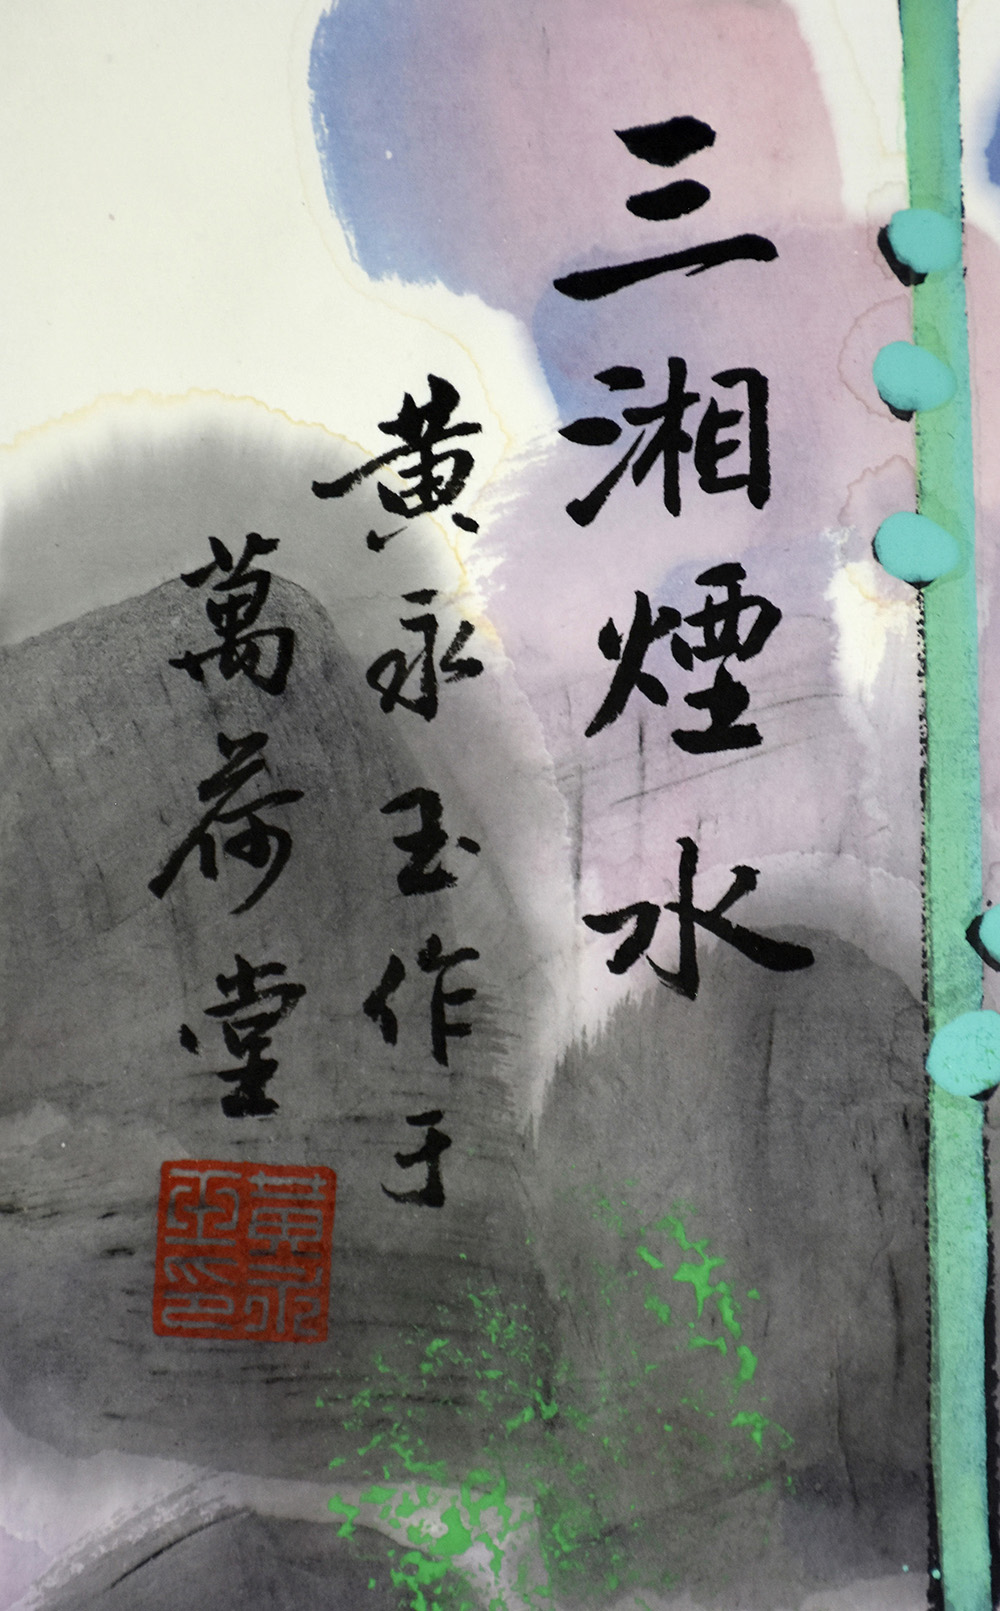 三湘煙水
黄永玉作于
萬荷堂
黄永玉印